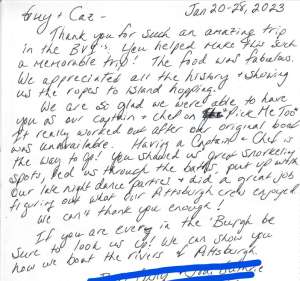 Guy + Caz -
Jan 20-28, 2023
Thank you for such an amazing trip
in the BVI's. You helped make this such
a memorable trip! The food was fabulous.
We appreciated all the history + showing
us the ropes to island hopping.
We are so glad we were able to have
you as our captain + chef on Pick Me Too!
It really worked out after our original boat
was unavailable. Having a Captain & Chef is
the way to go! You showed us great snorkeling
spots, led us through the baths, put up with
our late night dance parties + did a great job
figuring out what our Pittsburgh crew enjoyed
We can't thank you enough!
If you are every in the 'Burgh be
sure to look us up! We can show you
how we boat the rivers of Pittsburgh